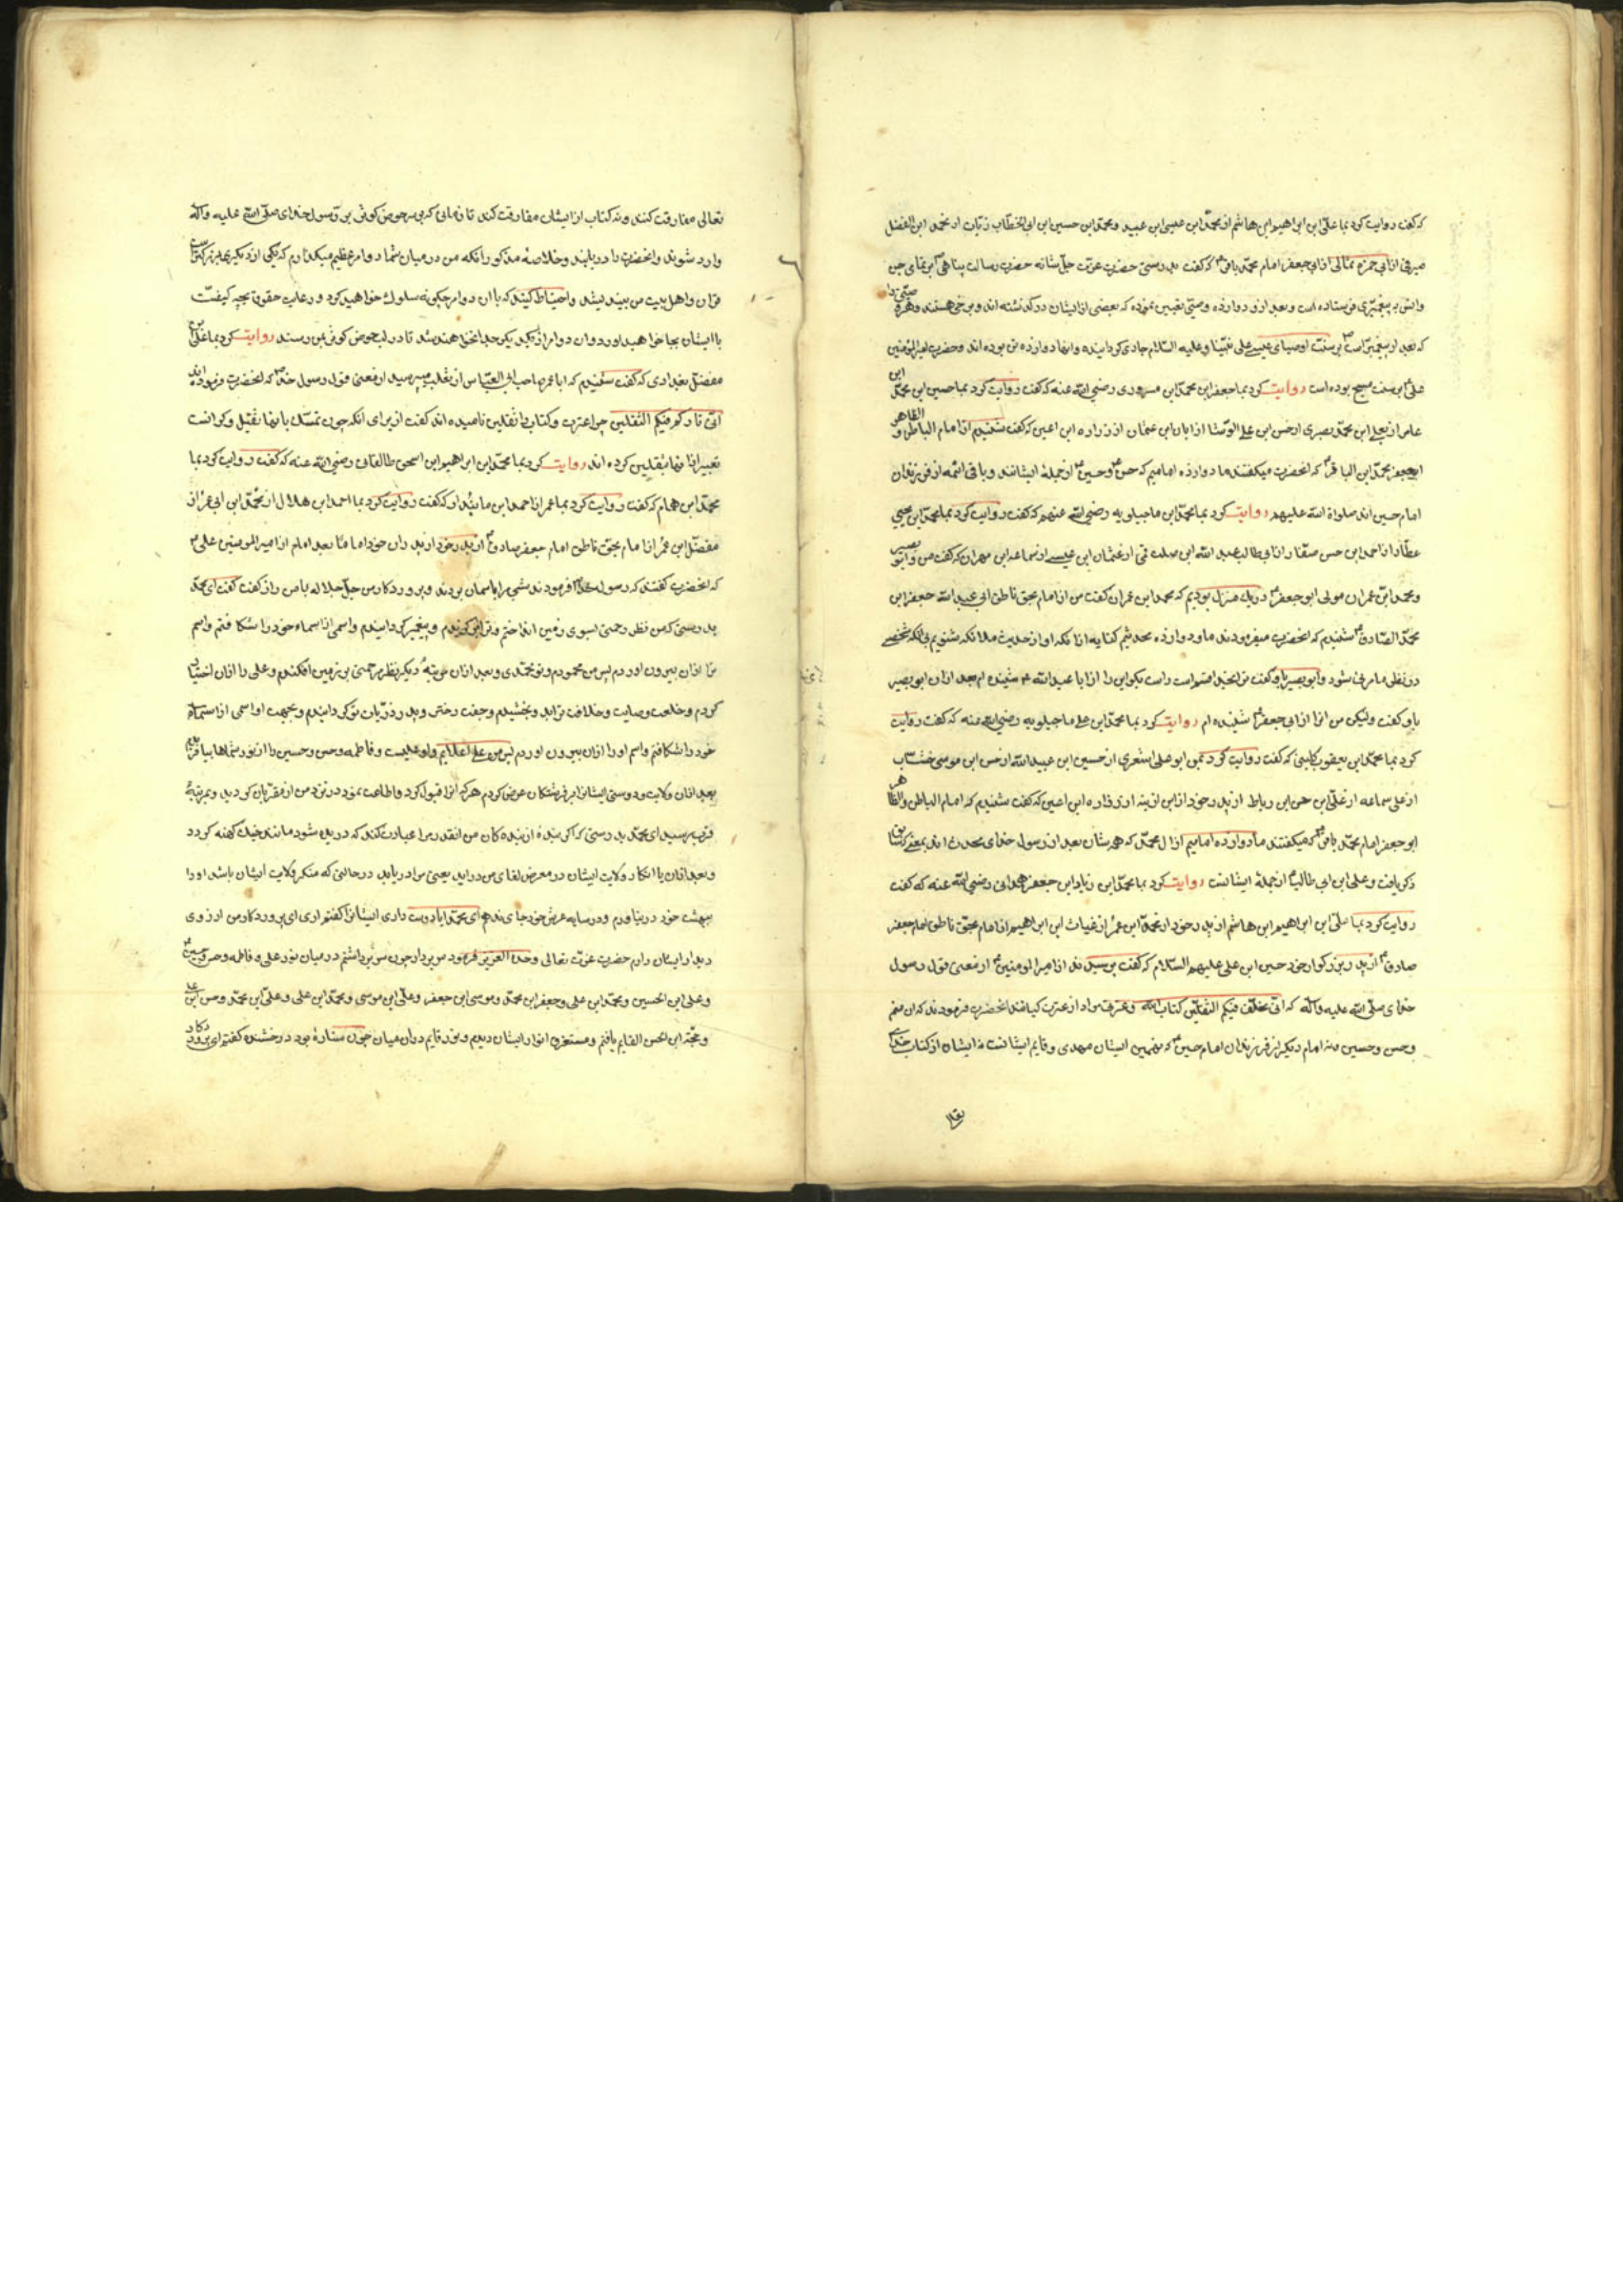 که گفت روایت کرد بما علی ابن ابراهیم ابن هاشم از محمد ابن عیسی ابن عبید و محمد ابن حسین ابن ابی الخطاب زیات از محمد ابن الفضل
صیرفی از ابی حمزه ثمالی از ابی جعفر امام محمد باقر که گفت بدرستی حضرت عزت جل شانه حضرت رسالت پناهی را بتمامی جن
وانس به پیغمبری فرستاده است و بعد از و دوازده وصی تعیین نموده که بعضی از ایشان درگذشته اند و برخی هستند و هر وصیی را
که بعد از پیغمبر ماست بر سنت اوصیای عیسی علی نبینا وعلیه السلام جاری گردانیده وانها دوازده تن بوده اند وحضرت امیرالمومنین
علی بر سنت مسیح بوده است روایت کرد بما جعفر ابن محمد ابن مسرور رضی الله عنه که گفت روایت کرد بما حسین ابن محمد ابن
عامر از معلی ابن محمد بصری از حسن ابن علی الوشا از ابان ابن عثمان از زراره ابن اعین که گفت شنیدم از امام الباطن و الظاهر
ابی جعفر محمد ابن الباقر که انحضرت میگفتند ما دوازده امامیم که حسن و حسین از جمله ایشانند و باقی ائمه از فرزندان
امام حسین اند صلواة الله علیهم روایت کرد بما محمد ابن ماجیلویه رضی الله عنهم که گفت روایت کرد بما محمد ابن یحیی
عطار از احمد ابن حسن صفار از ابی طالب عبد الله ابن صلت قمی از عثمان ابن عیسی از سماعه ابن مهران که گفت من و ابو بصیر
و محمد ابن عمران مولی ابو جعفر در یک منزل بودیم که محمد ابن عمران گفت من از امام بحق ناطق ابی عبد الله جعفر ابن
محمد الصادق شنیدم که انحضرت میفرمودند ما و دوازده محدثیم کنایه از انکه او از حدیث ملائکه شنویم بی انکه شخصی
در نظر ما مرئی شود و ابو بصیر باو گفت ترا بخدا قسم است راست بگو این را از ابا عبد الله شنیده ام بعد از ان ابو بصیر
باو گفت ولیکن من انرا از ابی جعفر شنیده ام روایت کرد بما محمد ابن علی ماجیلویه رضی الله عنه که گفت روایت
کرد بما محمد ابن یعقوب کلینی که گفت روایت کرد بمن ابو علی اشعری از حسین ابن عبید الله از حسن ابن موسی خشاب
از علی سماعه از علی ابن حسن ابن رباط از پدر خود از ابن اذینه از زراره ابن اعین که گفت شنیدم که امام الباطن و الظاهر
ابو جعفر امام محمد باقر که میگفتند ما دوازده امامیم از ال محمد که همه شان بعد از رسول خدای محدث اند بمعنی که سابق
ذکر یافت و علی ابن ابی طالب از جمله ایشانست روایت کرد بما محمد ابن زیاد ابن جعفر همدانی رضی الله عنه که گفت
روایت کرد بما علی ابن ابراهیم ابن هاشم از پدر خود از محمد ابن عمر از غیاث ابن ابراهیم از امام بحق ناطق امام جعفر
صادق از پدر بزرگوار خود حسین ابن علی علیهم السلام که گفت پرسیدند از امیرالمومنین از معنی قول رسول
خدای صلی الله علیه واله که انی مخلف فیکم الثقلین کتاب الله وعترتی مراد از عترت کیانند انحضرت فرمودند که ان منم
وحسن وحسین ونه امام دیگر از فرزندان امام حسین که نهمین ایشان مهدی وقایم ایشانست نه ایشان از کتاب خدای
تعالی
تعالی مفارقت کنند ونه کتاب از ایشان مفارقت کند تا زمانی که بر سر حوض کوثر بر رسول خدای صلی الله علیه واله
وارد شوند وانحضرت را دریابند وخلاصه مذکور انکه من در میان شما دو امر عظیم میگذارم که یکی از دیگری بزرگتر است
قران واهل بیت من ببیندیشد واحتیاط کنید که با ان دو امر چگونه سلوک خواهید کرد و رعایت حقوق بچه کیفیت
با ایشان بجا خواهید اورد وان دو امر از یکدیگر جدا نخواهند شد تا در لب حوض کوثر بمن رسند روایت کرد بما علی ابن
مفضل بغدادی که گفت شنیدم که ابا عمر صاحب ابی العباس از ثعلب میپرسید از معنی قول رسول خدا که انحضرت فرموده اند
انی تارکم فیکم الثقلین چرا عترت وکتاب را ثقلین نامیده اند گفت از برای انکه چون تمسک بانها ثقیل و گرانست
تعبیر از انها بثقلین کرده اند روایت کرد بما محمد ابن ابراهیم ابن اسحق طالقانی رضی الله عنه که گفت روایت کرد بما
محمد ابن همام که گفت روایت کرد بما عمر از احمد ابن مابنداد که گفت روایت کرد بما احمد ابن هلال از محمد ابن ابی عمر از
مفضل ابن عمر از امام بحق ناطق امام جعفر صادق از پدر خود از پدران خود اماما بعد امام از امیرالمومنین علی
که انحضرت گفتند که رسول خدا فرمودند شبی مرا باسمان بردند و پروردگار من جل جلاله باصی راز گفت گفت ای محمد
بدرستی که من نظر رحمتی بسوی زمین انداختم و ترا برگزیدم وپیغمبر گردانیدم واسمی از اسماء خود را شکافتم واسم
ترا ازان بیرون اوردم پس من محمودم وتو محمدی وبعد ازان مرتبه دیگر نظر مرحمتی بر زمین افکندم وعلی را ازان اختیار
کردم وخلعت وصایت وخلافت ترا بدو بخشیدم وجفت دختر وپدر ذریات تو گردانیدم وبجهت او اسمی از اسماء
خود را شکافتم واسم او را ازان بیرون اوردم پس من علی اعلایم واو علیست وفاطمه وحسن وحسین را از نور شماها بیافریدم
بعد ازان ولایت ودوستی ایشانرا بر فرشتگان عرض کردم هر که انرا قبول کرد واطاعت نمود در نزد من از مقربان گردید وبمرتبه
قرب رسید ای محمد بدرستی که اگر بنده از بنده کان من انقدر مرا عبادت کند که دریده شود مانند خیک کهنه گردد
وبعد ازان با انکار ولایت ایشان در معرض لقای من دراید یعنی مرا دریابد در حالتی که منکر ولایت ایشان باشد او را
ببهشت خود در نیاورم ودر سایه عرش خود جای ندهم ای محمد ایا دوست داری ایشانرا گفتم اری ای پروردگار من ارزوی
دیدار ایشان دارم حضرت عزت تعالی وحده العزیز فرمود سر بردار چون سر برداشتم در میان نور علی وفاطمه وحسن وحسین
وعلی ابن الحسین ومحمد ابن علی وجعفر ابن محمد وموسی ابن جعفر وعلی ابن موسی ومحمد ابن علی وعلی ابن محمد وحسن ابن علی
وحجة ابن الحسن القایم یافتم ومستغرق انوار ایشان دیدم ونور قایم دران میان چون ستاره بود درخشنده گفتم ای پروردگار